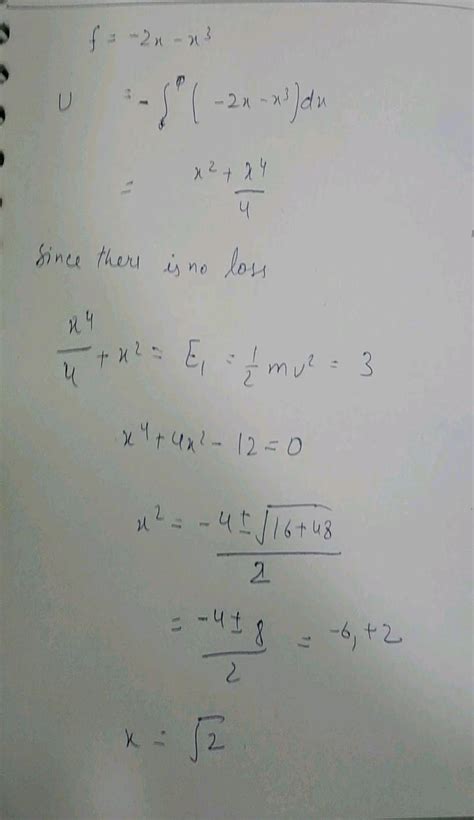 f = -2x - x³
U = -∫ (-2x - x³)dx
= x² + x⁴/4
Since there is no loss
x⁴/4 + x² = E₁ = 1/2 mv² = 3
x⁴ + 4x² - 12 = 0
x² = -4 ± √16+48 / 2
= -4 ± 8 / 2 = -6, +2
x = √2